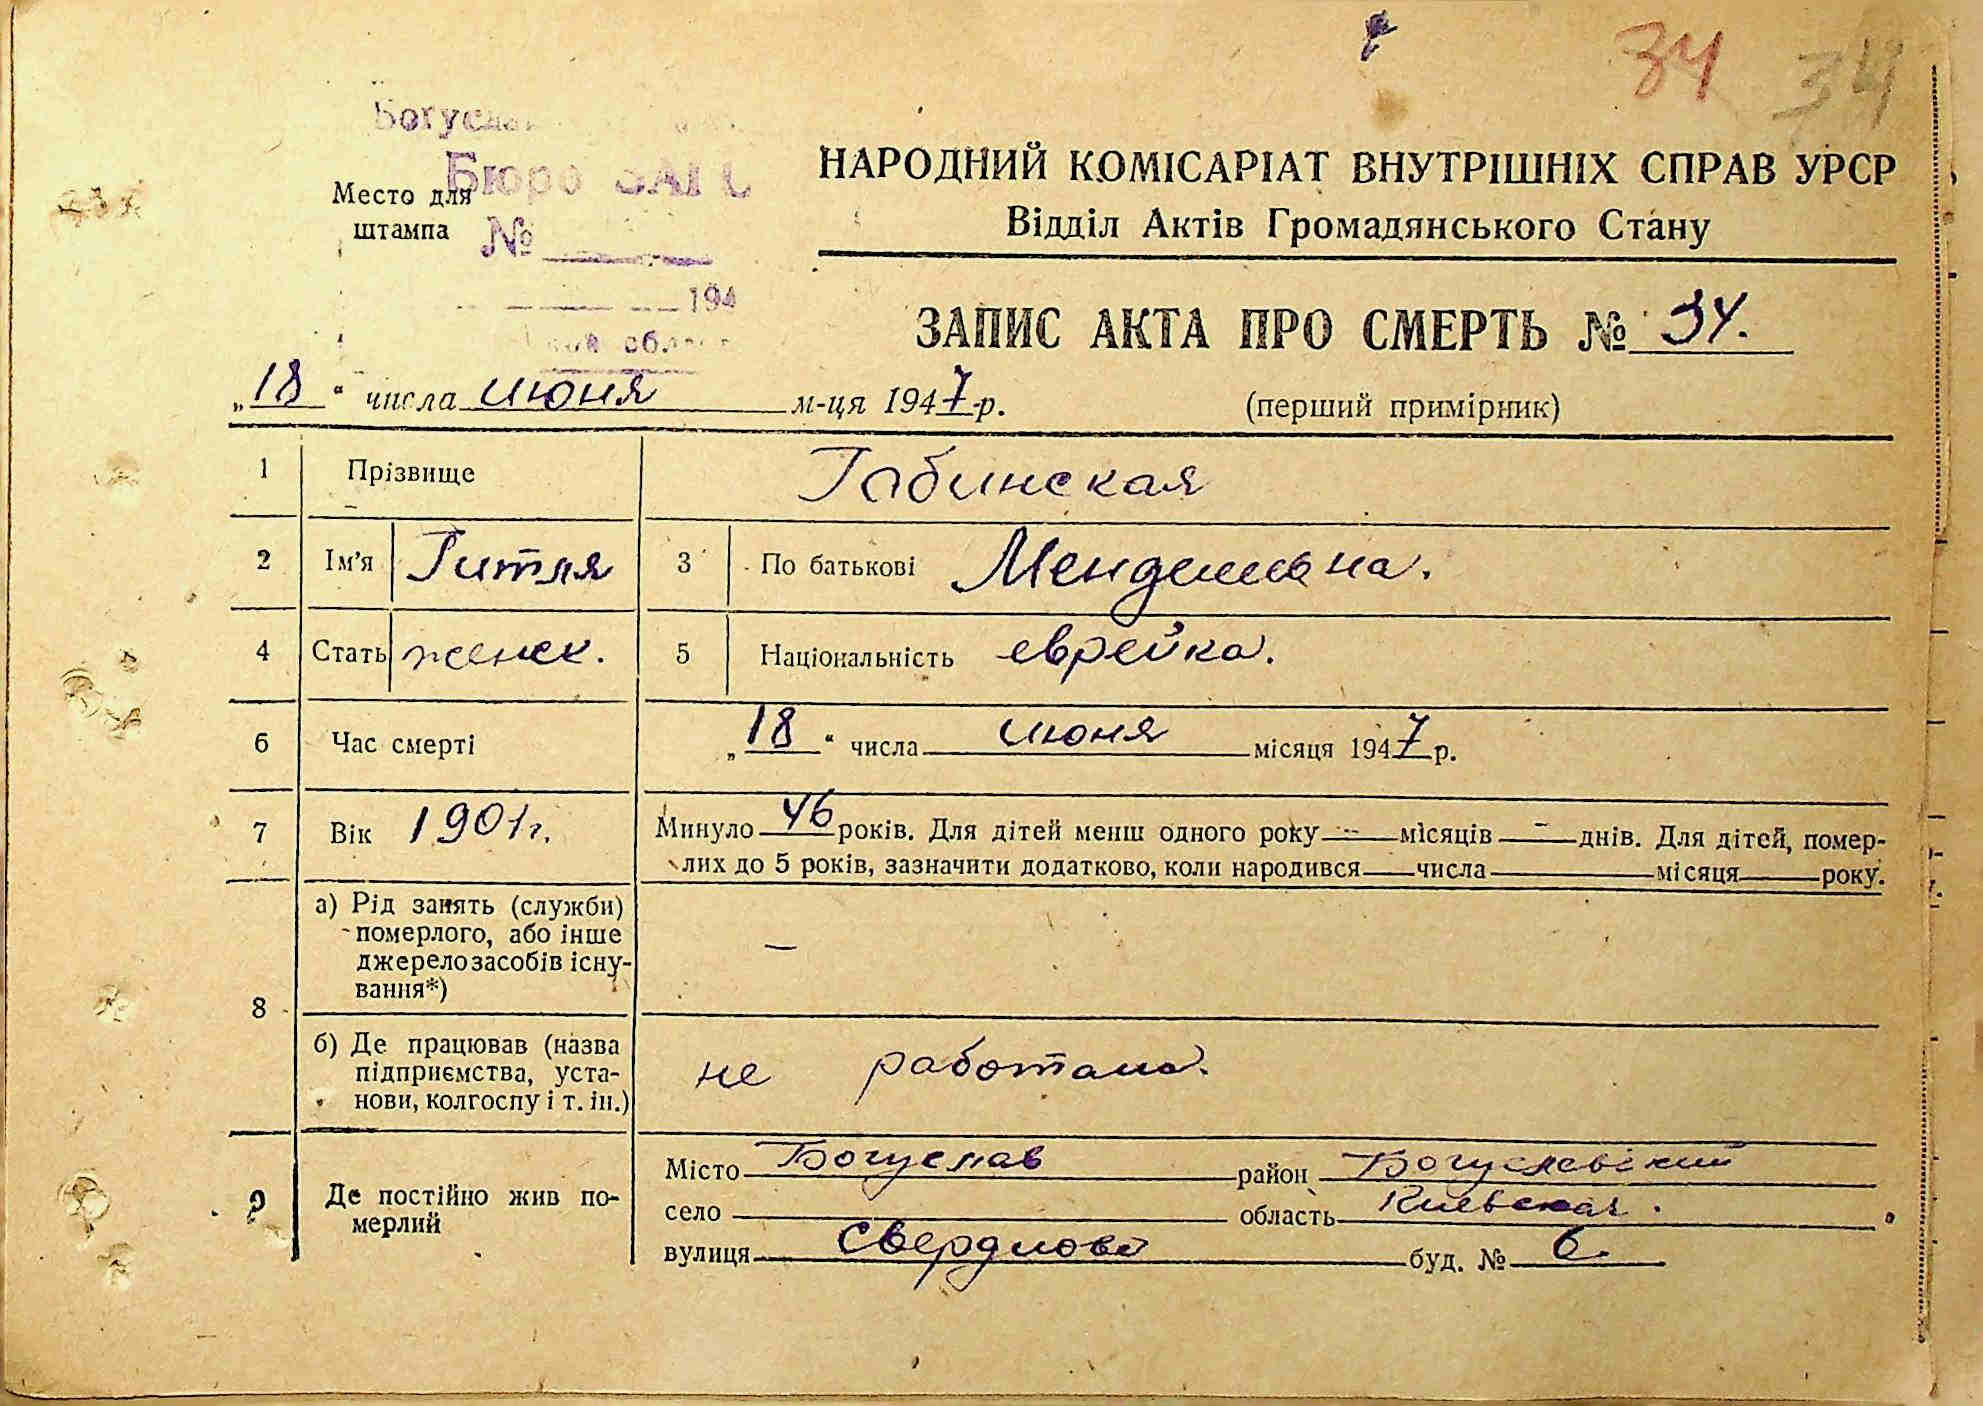 34 34
Бюро ЗАГС
Место для
штампа
№
194
НАРОДНИЙ КОМІСАРІАТ ВНУТРІШНІХ СПРАВ УРСР
Відділ Актів Громадянського Стану
ЗАПИС АКТА ПРО СМЕРТЬ № 34.
„18“ числа июня м-ця 1947 р.
(перший примірник)
1 Прізвище Габинская
2 Ім'я Гитля 3 По батькові Менделевна.
4 Стать женск. 5 Національність еврейка.
6 Час смерті „18“ числа июня місяця 1947 р.
7 Вік 1901 г. Минуло 46 років. Для дітей менш одного року - місяців - днів. Для дітей, помер-
лих до 5 років, зазначити додатково, коли народився числа місяця року.
8 а) Рід занять (служби)
померлого, або інше
джерело засобів існу-
вання*)
–
б) Де працював (назва
підприємства, уста-
нови, колгоспу і т. ін.)
не работала.
9 Де постійно жив по-
мерлий
Місто Богуслав район Богуславский
село область Киевская.
вулиця Свердлова буд. № 6.